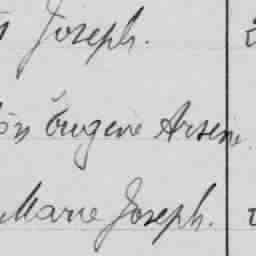 Joseph.
Eugene Arsene
Marie Joseph.